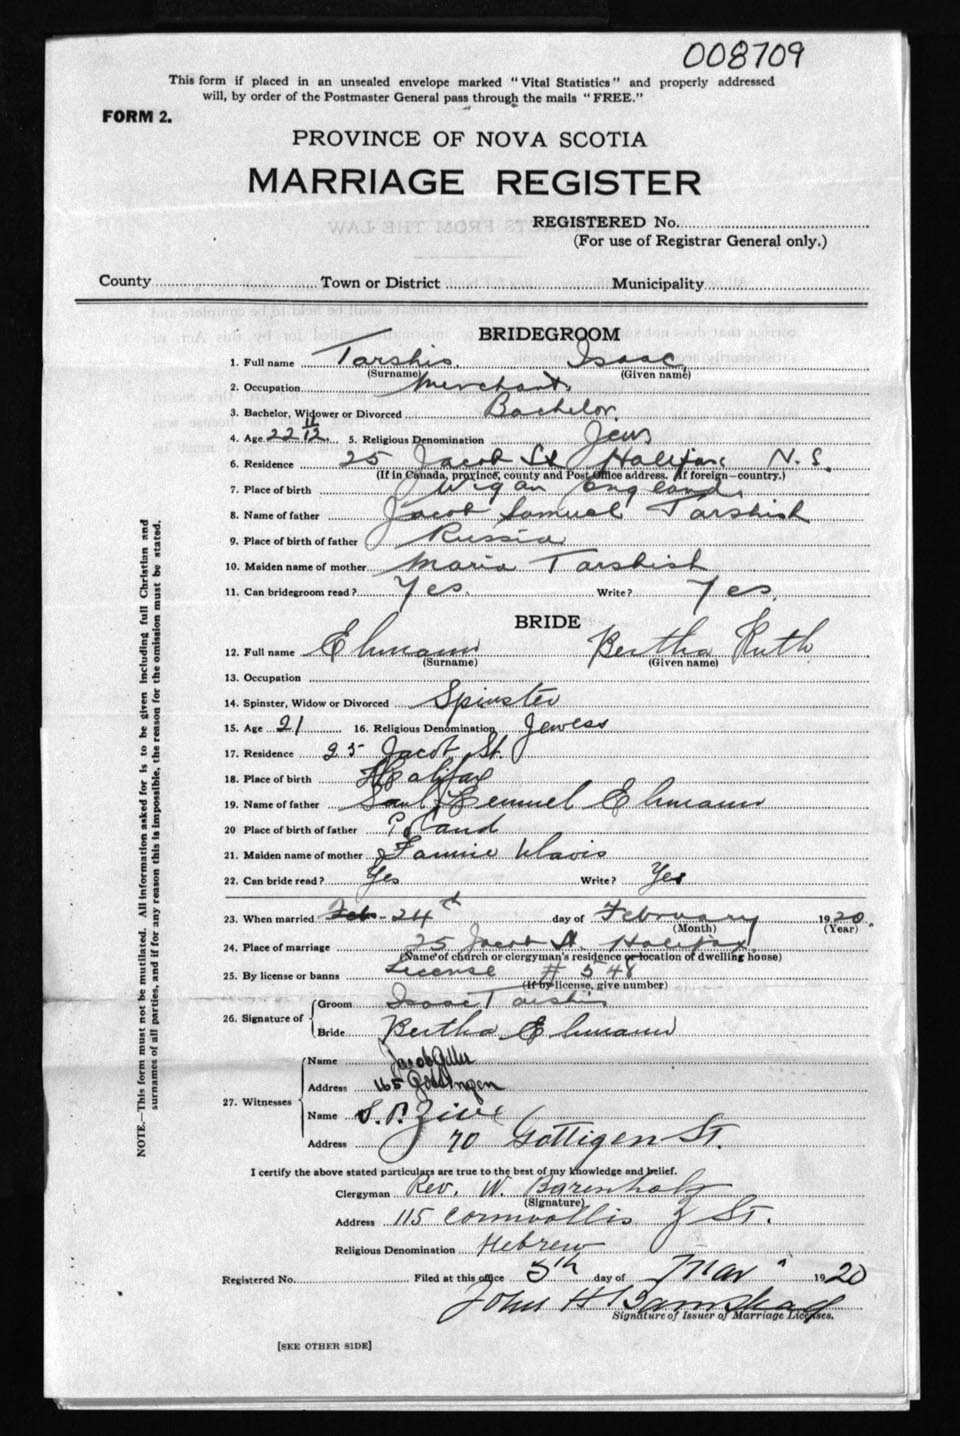 008709
This form if placed in an unsealed envelope marked "Vital Statistics" and properly addressed
will, by order of the Postmaster General pass through the mails "FREE."
FORM 2.
PROVINCE OF NOVA SCOTIA
MARRIAGE REGISTER
REGISTERED No.
(For use of Registrar General only.)
County Town or District Municipality
BRIDEGROOM
1. Full name Tarshis, Isaac
(Surname) (Given name)
2. Occupation Merchant
3. Bachelor, Widower or Divorced Bachelor
4. Age 22 11/12 5. Religious Denomination Jew
6. Residence 25 Jacob St Halifax N.S.
(If in Canada, province, county and Post Office address. If foreign—country.)
7. Place of birth Wigan England
8. Name of father Jacob Samuel Tarshish
9. Place of birth of father Russia
10. Maiden name of mother Maria Tarshish
11. Can bridegroom read? Yes. Write? Yes.
BRIDE
12. Full name Ehmann Bertha Ruth
(Surname) (Given name)
13. Occupation
14. Spinster, Widow or Divorced Spinster
15. Age 21 16. Religious Denomination Jewess
17. Residence 25 Jacob St.
18. Place of birth Halifax
19. Name of father Saul Lemuel Ehmann
20 Place of birth of father Poland
21. Maiden name of mother Fannie
22. Can bride read? Yes Write? Yes
23. When married Feb - 24th day of February 1920.
(Month) (Year)
24. Place of marriage 25 Jacob St. Halifax
(Name of church or clergyman's residence or location of dwelling house)
25. By license or banns License # 548
(If by license, give number)
26. Signature of
Groom Isaac Tarshis
Bride Bertha Ehmann
27. Witnesses
Name Jacob
Address 165
Name S. P. Zive
Address 70 Gottigen St.
I certify the above stated particulars are true to the best of my knowledge and belief.
Clergyman Rev. W. Barenholz
(Signature)
Address 115 Cornwallis St.
Religious Denomination Hebrew
Registered No. Filed at this office 5th day of Mar 1920
John H
Signature of Issuer of Marriage Licenses.
[SEE OTHER SIDE]
NOTE.—This form must not be mutilated. All information asked for is to be given including full Christian and
surnames of all parties, and if for any reason this is impossible, the reason for the omission must be stated.